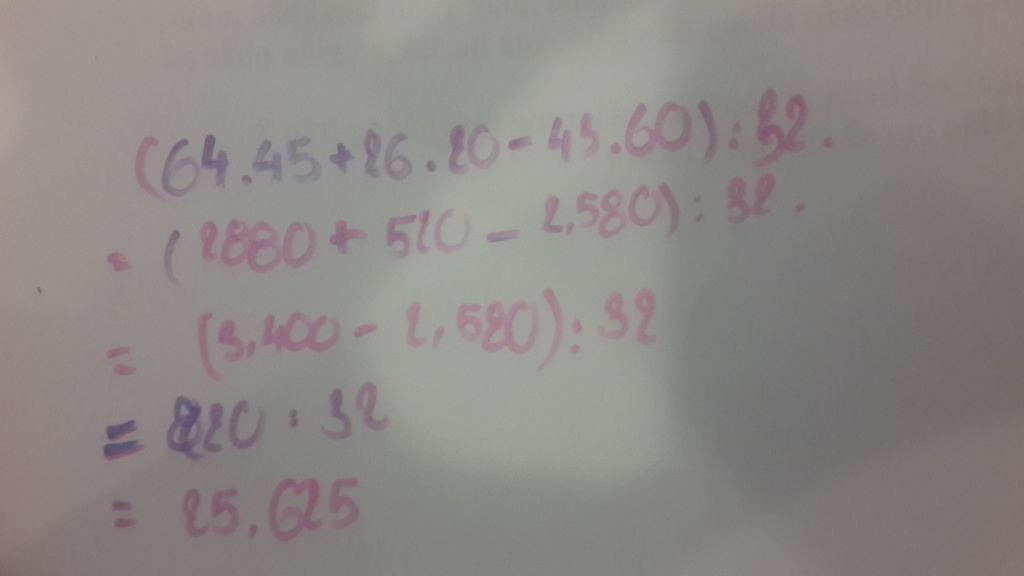 (64.45+26.20-43.60):32.
= (2880 + 520 - 2,580) : 32.
= (3,400 - 2,580) : 32
= 820 : 32
= 25,625